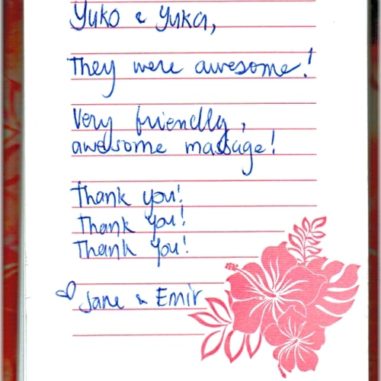 Yuko & Yuka,
They were awesome!
Very friendly,
awesome massage!
Thank you!
Thank you!
Thank you!
♡ Jane & Emir